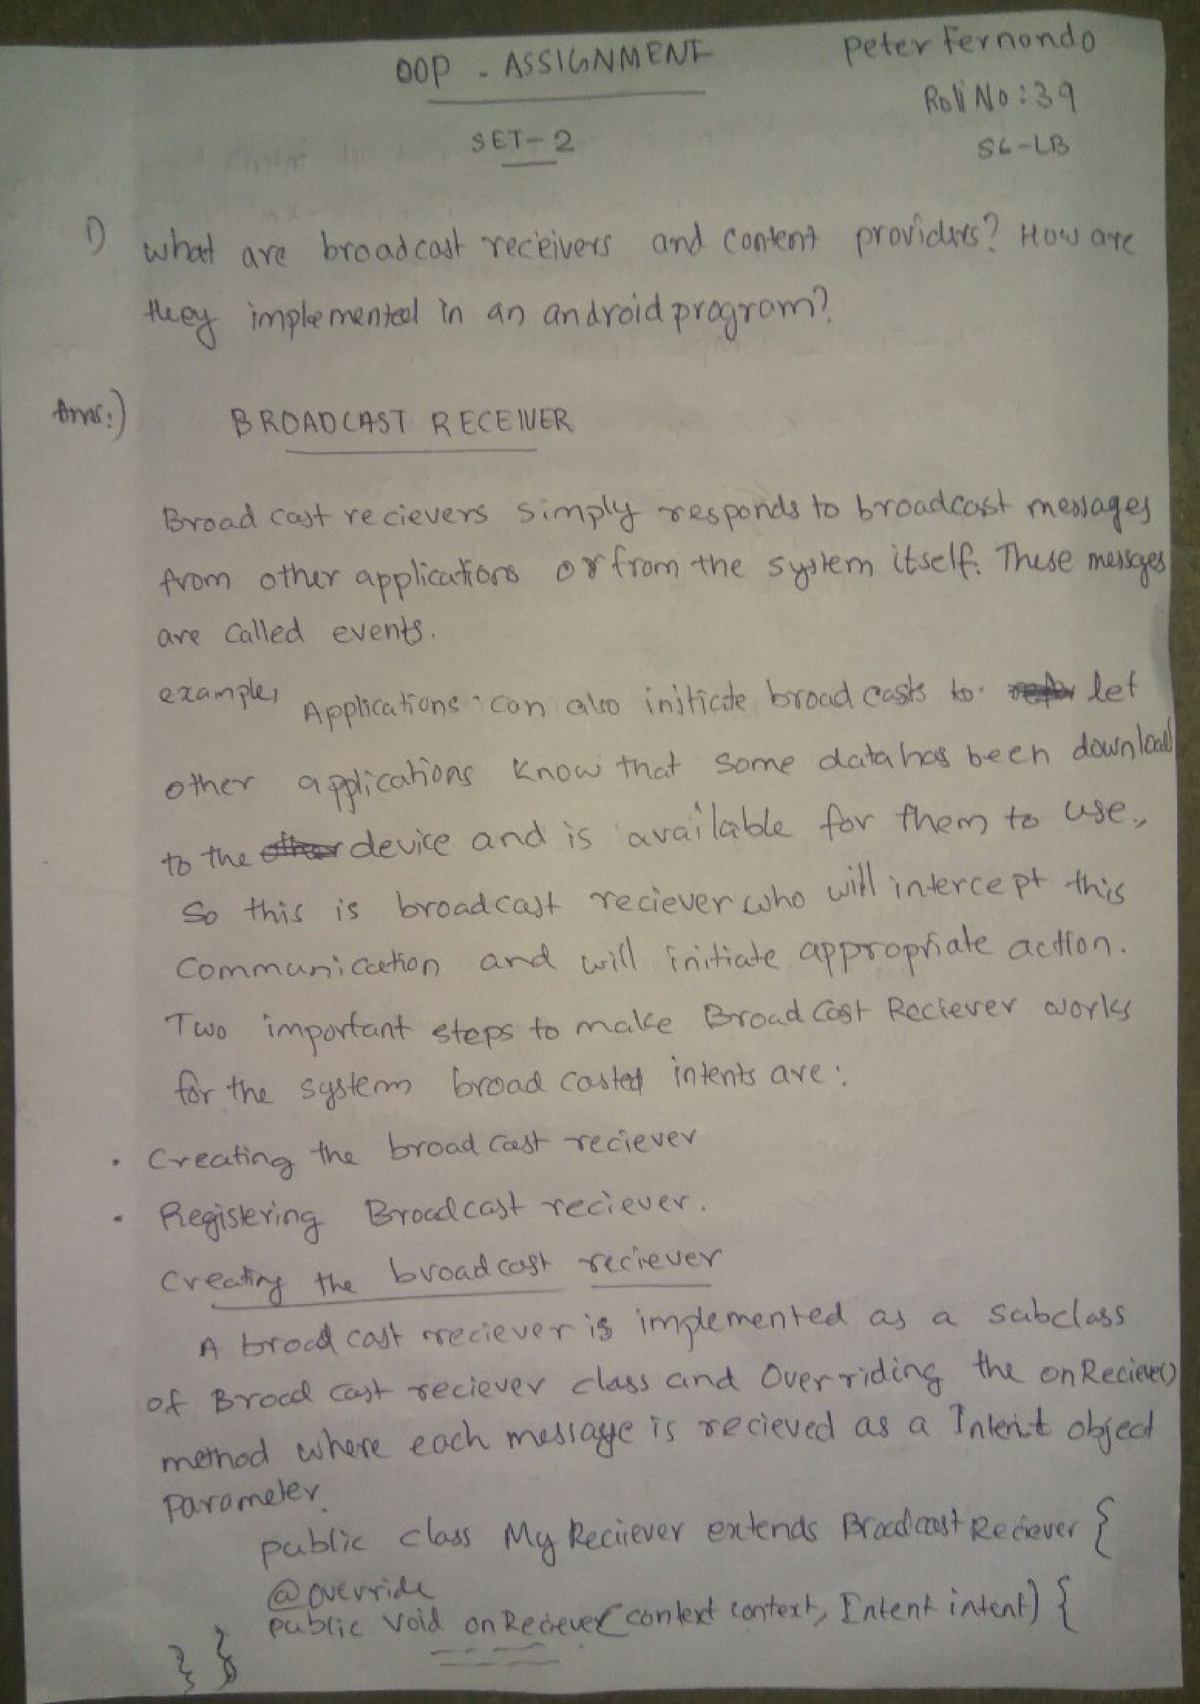 OOP - ASSIGNMENT
Peter Fernondo
Roll No: 39
SET-2
S6-LB
1) What are broadcast receivers and content providers? How are
they implemented in an android program?
Ans:) BROADCAST RECEIVER
Broad cast recievers simply responds to broadcast messages
from other applications or from the system itself. These messges
are called events.
example, Applications can also initiate broad casts to let
other applications know that some data has been download
to the device and is available for them to use.,
So this is broadcast reciever who will intercept this
communication and will initiate appropriate action.
Two important steps to make Broad Cast Reciever works
for the system broad casted intents are:
• Creating the broad cast reciever
• Registering Broadcast reciever.
Creating the broadcast reciever
A broad cast reciever is implemented as a subclass
of Broad cast reciever class and Overriding the onReciever()
method where each message is recieved as a Intent object
Parameter.
public class My Reciever extends Broadcast Reciever {
@override
public void onReciever(context context, Intent intent) {
} }